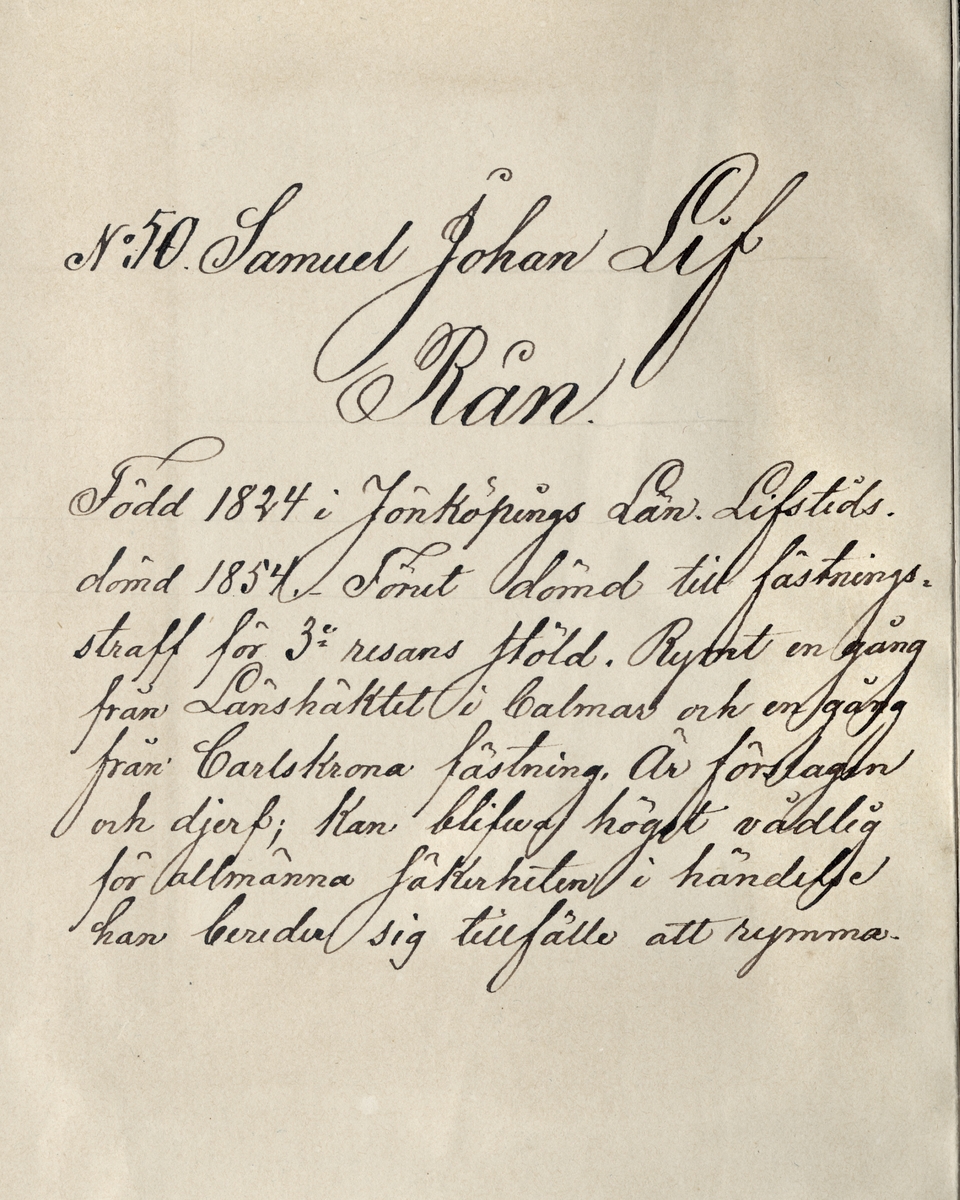 No 50. Samuel Johan Lif
Rån.
Född 1824 i Jönköpings Län. Lifstids.
dömd 1854. – Förut dömd till fästnings-
straff för 3e resans stöld. Rymt en gång
från Länshäktet i Calmar och en gång
från Carlskrona fästning. Är förslagen
och djerf; kan blifwa högst vådlig
för allmänna säkerheten i händelse
han bereder sig tillfälle att rymma.